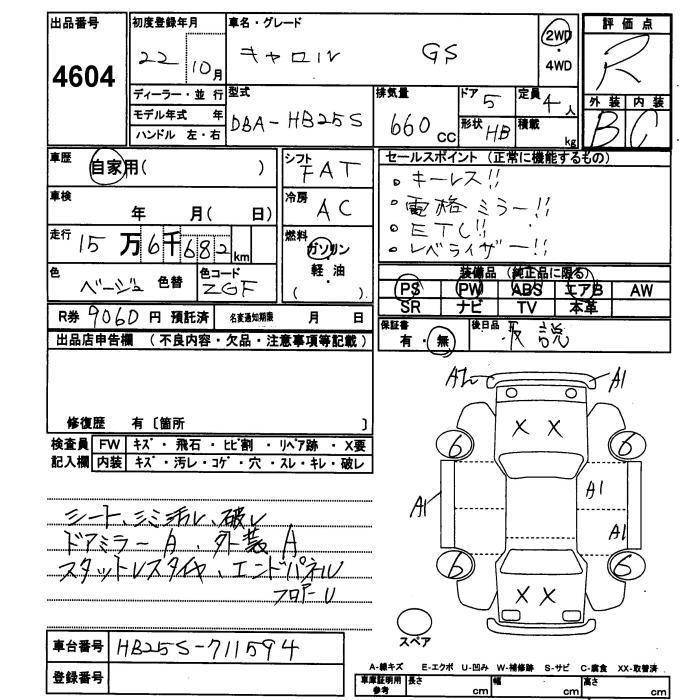 出品番号
4604
初度登録年月
22 10月
車名・グレード
キャロル GS
2WD
・
4WD
評価点
R
外装 内装
B C
ディーラー・並行
モデル年式 年
ハンドル 左・右
型式
DBA-HB25S
排気量
660 CC
ドア 5
形状 HB
定員 4人
積載 kg
車歴
自家用( )
車検
年 月( 日)
走行
15万6千682km
色
ベージュ 色替
色コード
ZGF
シフト
FAT
冷房
AC
燃料
ガソリン
軽油
( )
セールスポイント (正常に機能するもの)
。キーレス!!
。電格ミラー!!
。ETC!!
。レベライザー!!
装備品 (純正品に限る)
PS PW ABS エアB AW
SR ナビ TV 本革
R券 9060円 預託済
名変通知期限 月 日
保証書
有・無
後日品
取説
出品店申告欄 (不良内容・欠品・注意事項等記載)
修復歴 有〔箇所 〕
検査員
記入欄
FW キズ・飛石・ヒビ割・リペア跡・X要
内装 キズ・汚レ・コゲ・穴・スレ・キレ・破レ
シート、シミ汚レ、破レ
ドアミラーA、外装A
スタットレスタイヤ、エンドパネル
フロアーU
A2 A1
X X
6 6
A1 A1
A1
6 6
X X
スペア
車台番号
HB25S-711594
登録番号
A-線キズ E-エクボ U-凹み W-補修跡 S-サビ C-腐食 XX-取替済
車庫証明用
参考
長さ cm 幅 cm 高さ cm